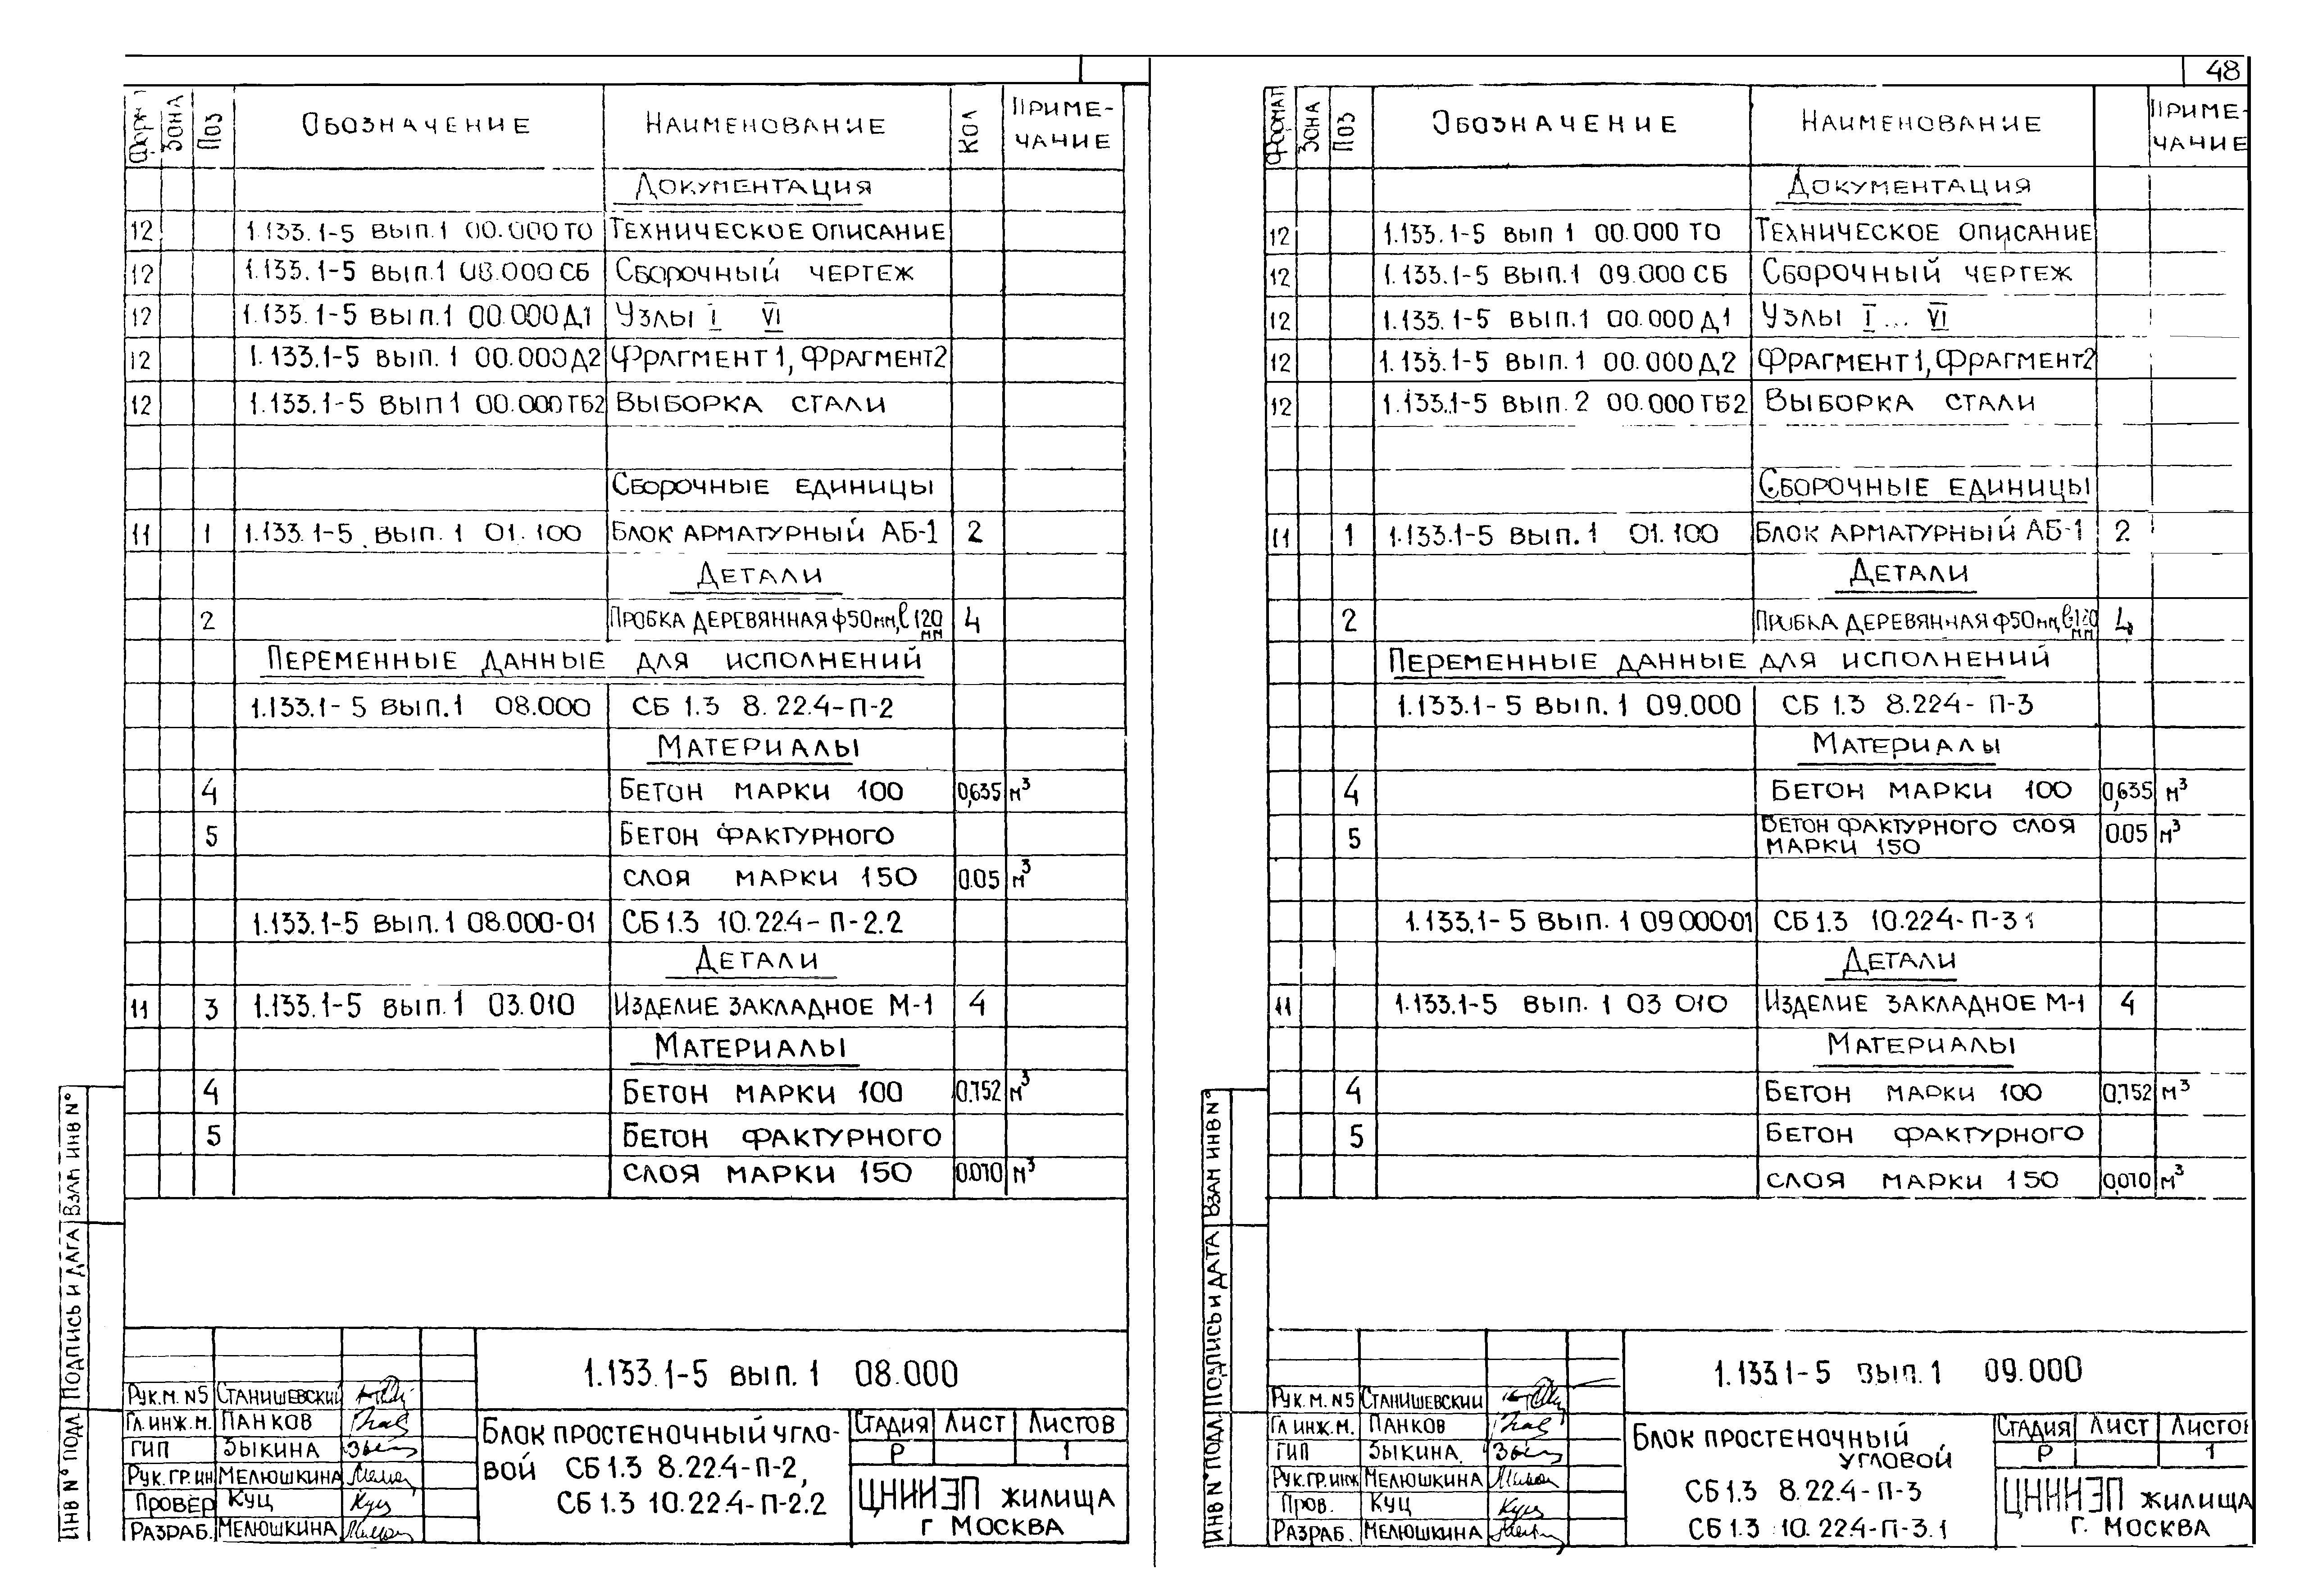 48
Форм Зона Поз Обозначение Наименование Кол Приме-
чание
Документация
12 1.133.1-5 вып.1 00.000 ТО Техническое описание
12 1.133.1-5 вып.1 08.000 СБ Сборочный чертеж
12 1.133.1-5 вып.1 00.000 Д1 Узлы I VI
12 1.133.1-5 вып.1 00.000 Д2 Фрагмент 1, Фрагмент 2
12 1.133.1-5 вып 1 00.000 ТБ2 Выборка стали
Сборочные единицы
11 1 1.133.1-5 вып.1 01.100 Блок арматурный АБ-1 2
Детали
2 Пробка деревянная ф50мм, ℓ120 мм 4
Переменные данные для исполнений
1.133.1-5 вып.1 08.000 СБ 1.3 8.22.4-П-2
Материалы
4 Бетон марки 100 0,635 м³
5 Бетон фактурного
слоя марки 150 0.05 м³
1.133.1-5 вып.1 08.000-01 СБ 1.3 10.22.4-П-2.2
Детали
11 3 1.133.1-5 вып.1 03.010 Изделие закладное М-1 4
Материалы
4 Бетон марки 100 0.752 м³
5 Бетон фактурного
слоя марки 150 0.070 м³
Инв № подл Подпись и дата Взам инв №
1.133.1-5 вып.1 08.000
Рук.м. №5 Станишевский
Гл.инж.м. Панков
ГИП Зыкина
Рук.гр.ин Мелюшкина
Провер Куц
Разраб. Мелюшкина
Блок простеночный угло-
вой СБ 1.3 8.22.4-П-2,
СБ 1.3 10.22.4-П-2.2
Стадия Лист Листов
Р 1
ЦНИИЭП жилища
г Москва
Формат Зона Поз Обозначение Наименование Приме-
чание
Документация
12 1.133.1-5 вып 1 00.000 ТО Техническое описание
12 1.133.1-5 вып.1 09.000 СБ Сборочный чертеж
12 1.133.1-5 вып.1 00.000 Д1 Узлы I ... VI
12 1.133.1-5 вып.1 00.000 Д2 Фрагмент 1, Фрагмент 2
12 1.133.1-5 вып.2 00.000 ТБ2 Выборка стали
Сборочные единицы
11 1 1.133.1-5 вып.1 01.100 Блок арматурный АБ-1 2
Детали
2 Пробка деревянная ф50мм, ℓ120 мм 4
Переменные данные для исполнений
1.133.1-5 вып.1 09.000 СБ 1.3 8.22.4-П-3
Материалы
4 Бетон марки 100 0,635 м³
5 Бетон фактурного слоя
марки 150 0.05 м³
1.133.1-5 вып.1 09000-01 СБ 1.3 10.22.4-П-3 1
Детали
11 1.133.1-5 вып.1 03 010 Изделие закладное М-1 4
Материалы
4 Бетон марки 100 0.752 м³
5 Бетон фактурного
слоя марки 150 0,070 м³
Инв № подл Подпись и дата Взам инв №
1.133.1-5 вып.1 09.000
Рук.м. №5 Станишевский
Гл инж.м. Панков
ГИП Зыкина
Рук.гр.инж Мелюшкина
Пров. Куц
Разраб. Мелюшкина
Блок простеночный
угловой
СБ 1.3 8.22.4-П-3
СБ 1.3 10.22.4-П-3.1
Стадия Лист Листов
Р 1
ЦНИИЭП жилища
г. Москва